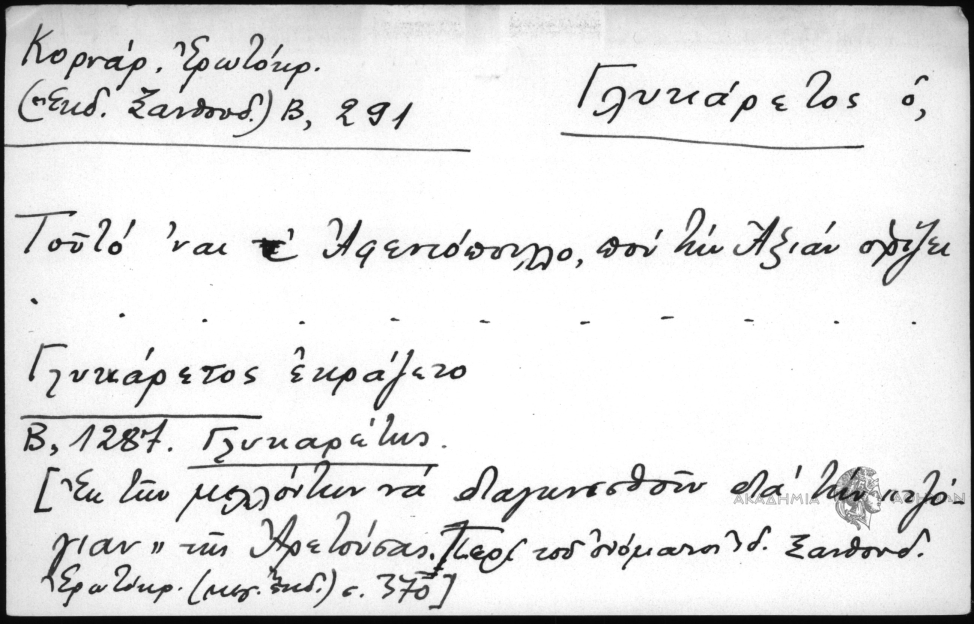 Κορνάρ. Ἐρωτόκρ.
(Ἔκδ. Ξανθουδ.) Β, 291
Γλυκάρετος ὁ,
Τοῦτό 'ναι τ' Ἀφεντόπουλο, ποὺ τὴν Ἀξιάν ὁρίζει
. . . . . . . . . . .
Γλυκάρετος ἐκράζετο
Β, 1287. Γλυκαρέτης.
[Ἐκ τῶν μελλόντων νά διαγωνισθοῦν διά τήν «τζό-
γιαν» τῆς Ἀρετούσας. Περί τοῦ ὀνόματος ἰδ. Ξανθουδ.
Ἐρωτόκρ. (μεγ. ἔκδ.) σ. 370]
ΑΚΑΔΗΜΙΑ ΑΘΗΝΩΝ